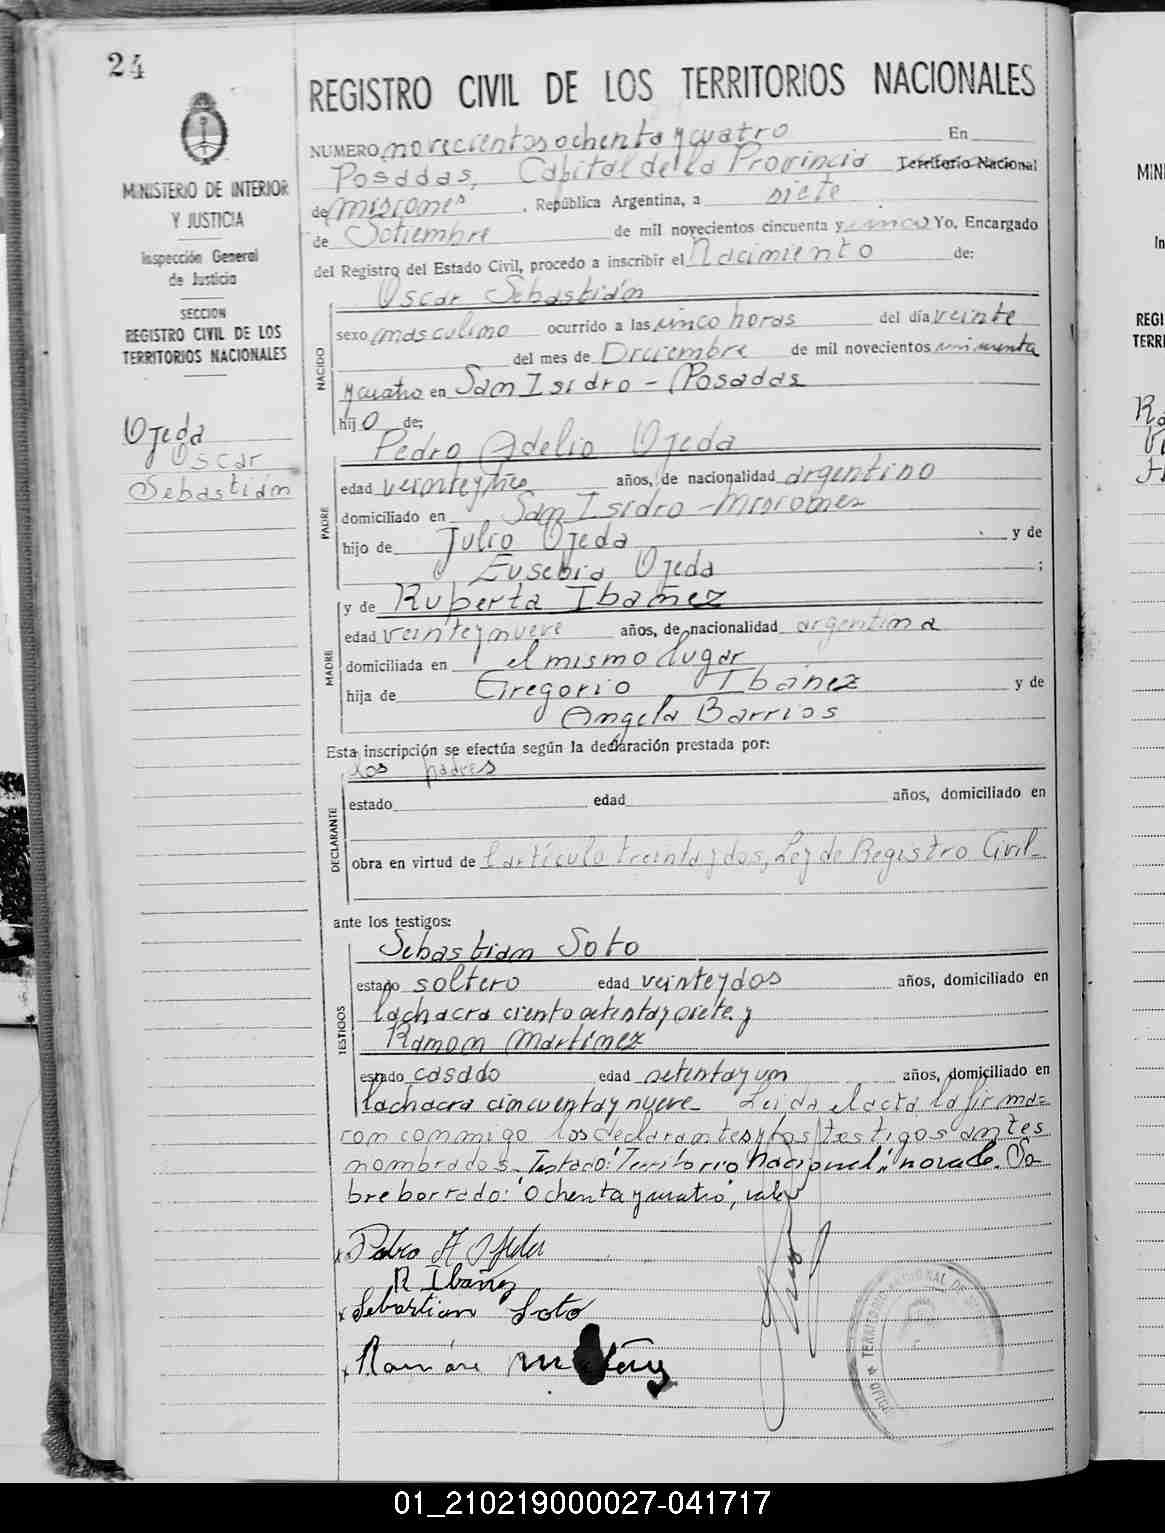 24
MINISTERIO DE INTERIOR
Y JUSTICIA
Inspección General
de Justicia
SECCION
REGISTRO CIVIL DE LOS
TERRITORIOS NACIONALES
Ojeda
Oscar
Sebastián
REGISTRO CIVIL DE LOS TERRITORIOS NACIONALES
NUMERO novecientos ochenta y cuatro En
Posadas, Capital de la Provincia Territorio Nacional
de Misiones, República Argentina, a siete
de Setiembre de mil novecientos cincuenta y cinco Yo, Encargado
del Registro del Estado Civil, procedo a inscribir el Nacimiento de:
NACIDO
Oscar Sebastián
sexo masculino ocurrido a las cinco horas del día veinte
del mes de Diciembre de mil novecientos cincuenta
y cuatro en San Isidro - Posadas
hij o de:
PADRE
Pedro Adelio Ojeda
edad años, de nacionalidad argentino
domiciliado en San Isidro - Misiones
hijo de Julio Ojeda y de
Eusebia Ojeda ;
MADRE
y de Ruperta Ibañez
edad veinte y nueve años, de nacionalidad argentina
domiciliada en el mismo lugar
hija de Gregorio Ibañez y de
Angela Barrios
Esta inscripción se efectúa según la declaración prestada por:
DECLARANTE
los padres
estado edad años, domiciliado en
obra en virtud de l artículo treinta y dos, Ley de Registro Civil-
ante los testigos:
TESTIGOS
Sebastian Soto
estado soltero edad veinte y dos años, domiciliado en
la chacra ciento setenta y siete y
Ramon Martinez
estado casado edad setenta y un años, domiciliado en
la chacra cincuenta y nueve- Leida el acta la firma=
con conmigo los declarantes y los testigos antes
nombrados- Testado: "Territorio Nacional", no vale. So-
bre borrado: "ochenta y cuatro", vale
Pedro A Ojeda
R Ibañez
Sebastian Soto
Ramón
TERRITORIO NACIONAL DE
01_210219000027-041717